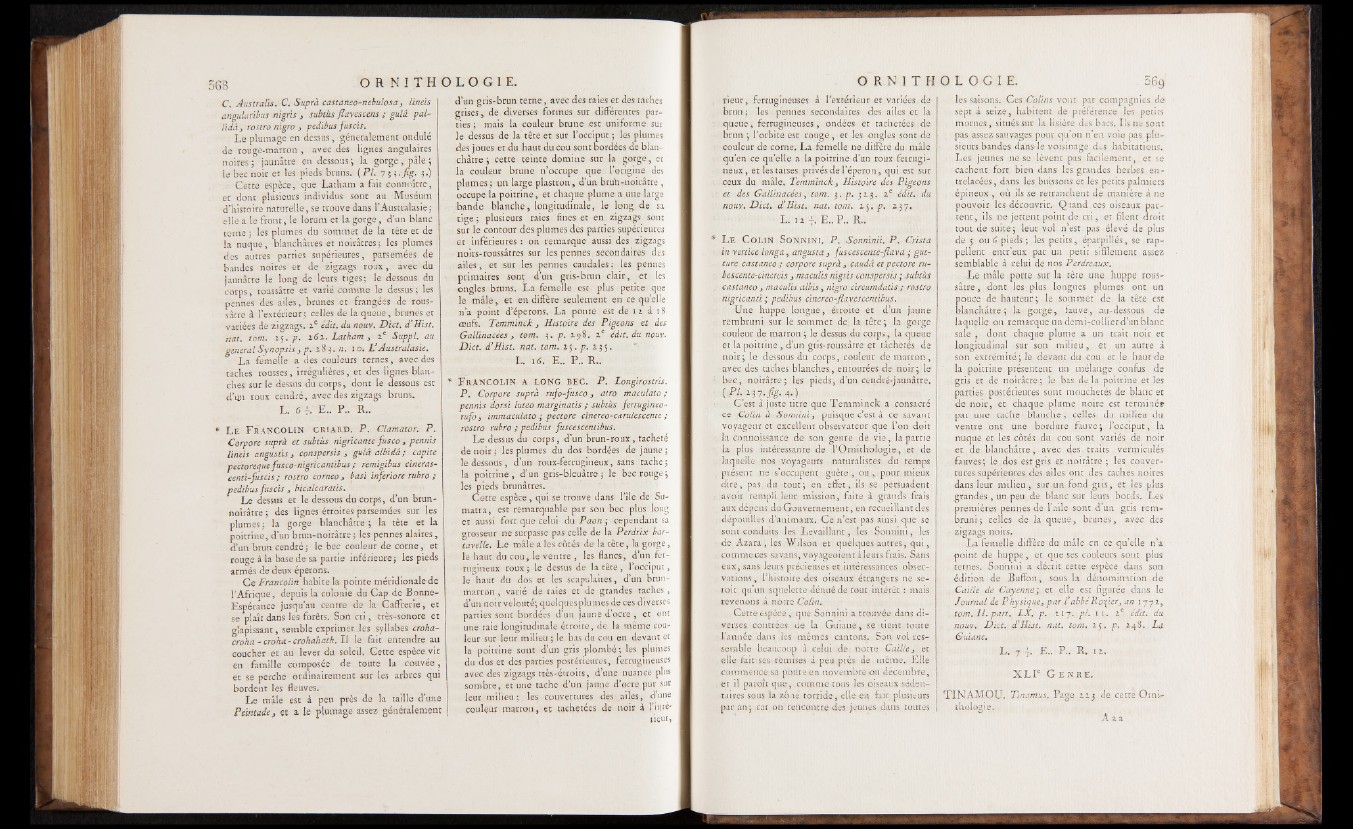 568
ORNITHOLOGIE.
C. Australis. C. Suprà castaneo-nebulosa, lineis
angularibus nigris, subtùs flavescens; gulâ pal-
lidâ, rostro nigro, pedibus fuscis.
Le plumage en dessus, généralement ondulé
de rouge-marron, avec des lignes angulaires
noires; jaunâtre en dessous; la gorge, pâle;
le bec noir et les pieds bruns. (Pl. 733. fig. 3.)
Cette espèce, que Latham a fait connoître,
et dont plusieurs individus sont au Muséum
d'histoire naturelle, se trouve dans l'Australasie;
elle a le front, le lorum et la gorge, d'un blanc
terne; les plumes du sommet de la tête et de
la nuque, blanchâtres et noirâtres; les plumes
des autres parties supérieures, parsemées de
bandes noires et de zigzags roux, avec du
jaunâtre le long de leurs tiges; le dessous du
corps, roussâtre et varié comme le dessus; les
pennes des ailes, brunes et frangées de rous-
sâtre à l'extérieur; celles de la queue, brunes et
variées de zigzags. 2e édit. du nouv. Dict. d'Hist.
nat. tom. 25. p. 262. Latham, 2e Suppl. au
general Synopsis, p. 283. n. 10. L'Australasie.
La femelle a des couleurs ternes, avec des
taches rousses, irrégulières, et des lignes blan-
ches sur le dessus du corps, dont le dessous est
d'un roux cendré, avec des zigzags bruns.
L. 6 ½. E.. P.. R..
* LE FRANCOLIN CRIARD. P. Clamator. P.
Corpore suprà et subtùs nigricante fusco, pennis
lineis angustis, conspersis, gulâ albidâ; capite
pectoreque fusco-nigricantibus; remigibus cineras-
centi-fuscis; rostro corneo, basi inferiore rubro;
pedibus fuscis, bicalcaratis.
Le dessus et le dessous du corps, d'un brun-
noirâtre; des lignes étroites parsemées sur les
plumes; la gorge blanchâtre; la tête et la
poitrine, d'un brun-noirâtre; les pennes alaires,
d'un brun cendré; le bec couleur de corne, et
rouge à la base de sa partie inférieure; les pieds
armés de deux éperons.
Ce Francolin habite la pointe méridionale de
l'Afrique, depuis la colonie du Cap de Bonne-
Espérance jusqu'au centre de la Caffrerie, et
se plaît dans les forêts. Son cri, très-sonore et
glapissant, semble exprimer les syllabes croha-
croha-croha-crohahach. Il le fait entendre au
coucher et au lever du soleil. Cette espèce vit
en famille composée de toute la couvée,
et se perche ordinairement sur les arbres qui
bordent les fleuves.
Le mâle est à peu près de la taille d'une
Peintade, et a le plumage assez généralement
d'un gris-brun terne, avec des raies et des taches
grises, de diverses formes sur différentes par-
ties; mais la couleur brune est uniforme sur
le dessus de la tête et sur l'occiput; les plumes
des joues et du haut du cou sont bordées de blan-
châtre; cette teinte domine sur la gorge, et
la couleur brune n'occupe que l'origine des
plumes; un large plastron, d'un brun-noirâtre,
occupe la poitrine, et chaque plume a une large
bande blanche, longitudinale, le long de sa
tige; plusieurs raies fines et en zigzags sont
sur le contour des plumes des parties supérieures
et inférieures: on remarque aussi des zigzags
noirs-roussâtres sur les pennes secondaires des
ailes, et sur les pennes caudales; les pennes
primaires sont d'un gris-brun clair, et les
ongles bruns. La femelle est plus petite que
le mâle, et en diffère seulement en ce qu'elle
n'a point d'éperons. La ponte est de 12 à 18
œufs. Temminck, Histoire des Pigeons et des
Gallinacées, tom. 3. p. 298. 2e édit. du nouv.
Dict. d'Hist. nat. tom. 25. p. 235.
L. 16. E.. P.. R..
* FRANCOLIN A LONG BEC. P. Longirostris.
P. Corpore suprà rufo-fusco, atro maculato;
pennis dorsi luteo marginatis; subtùs ferrugineo-
rufo, immaculato; pectore cinereo-cærulescente;
rostro rubro; pedibus fuscescentibus.
Le dessus du corps, d'un brun-roux, tacheté
de noir; les plumes du dos bordées de jaune;
le dessous, d'un roux-ferrugineux, sans tache;
la poitrine, d'un gris-bleuâtre; le bec rouge;
les pieds brunâtres.
Cette espèce, qui se trouve dans l'île de Su-
matra, est remarquable par son bec plus long
et aussi fort que celui du Paon; cependant sa
grosseur ne surpasse pas celle de la Perdrix bar-
tavelle. Le mâle a les côtés de la tête, la gorge,
le haut du cou, le ventre, les flancs, d'un fer-
rugineux roux; le dessus de la tête, l'occiput,
le haut du dos et les scapulaires, d'un brun-
marron, varié de raies et de grandes taches,
d'un noir velouté; quelques plumes de ces diverses
parties sont bordées d'un jaune d'ocre, et ont
une raie longitudinale étroite, de la même cou-
leur sur leur milieu; le bas du cou en devant et
la poitrine sont d'un gris plombé; les plumes
du dos et des parties postérieures, ferrugineuses
avec des zigzags très-étroits, d'une nuance plus
sombre, et une tache d'un jaune d'ocre pur sur
leur milieu; les couvertures des ailes, d'une
couleur marron, et tachetées de noir à l'inté-
rieur,
ORNITHOLOGIE.
569
rieur, ferrugineuses à l'extérieur et variées de
brun; les pennes secondaires des ailes et la
queue, ferrugineuses, ondées et tachetées de
brun; l'orbite est rouge, et les ongles sont de
couleur de corne. La femelle ne diffère du mâle
qu'en ce qu'elle a la poitrine d'un roux ferrugi-
neux, et les tarses privés de l'éperon, qui est sur
ceux du mâle. Temminck, Histoire des Pigeons
et des Gallinacées, tom. 3. p. 323. 2e édit. du
nouv. Dict. d'Hist. nat. tom. 25. p. 237.
L. 12 ½. E.. P.. R..
* LE COLIN SONNINI. P. Sonninii. P. Crista
in vertice longa, angusta, fuscescente-flava; gut-
ture castaneo; corpore suprà, caudâ et pectore ru-
bescente-cinereis, maculis nigris conspersis; subtùs
castaneo, maculis albis, nigro circumdatis; rostro
nigricanti; pedibus cinereo-flavescentibus.
Une huppe longue, étroite et d'un jaune
rembruni sur le sommet de la tête; la gorge
couleur de marron; le dessus du corps, la queue
et la poitrine, d'un gris-roussâtre et tachetés de
noir; le dessous du corps, couleur de marron,
avec des taches blanches, entourées de noir; le
bec, noirâtre; les pieds, d'un cendré-jaunâtre.
(Pl. 237. fig. 4.)
C'est à juste titre que Temminck a consacré
ce Colin à Sonnini, puisque c'est à ce savant
voyageur et excellent observateur que l'on doit
la connoissance de son genre de vie, la partie
la plus intéressante de l'Ornithologie, et de
laquelle nos voyageurs naturalistes du temps
présent ne s'occupent guère, ou, pour mieux
dire, pas du tout; en effet, ils se persuadent
avoir rempli leur mission, faite à grands frais
aux dépens du Gouvernement, en recueillant des
dépouilles d'animaux. Ce n'est pas ainsi que se
sont conduits les Levaillant, les Sonnini, les
de Azara, les Wilson et quelques autres, qui,
comme ces savans, voyageoient à leurs frais. Sans
eux, sans leurs précieuses et intéressantes obser-
vations, l'histoire des oiseaux étrangers ne se-
roit qu'un squelette dénué de tout intérêt: mais
revenons à notre Colin.
Cette espèce, que Sonnini a trouvée dans di-
verses contrées de la Guiane, se tient toute
l'année dans les mêmes cantons. Son vol res-
semble beaucoup à celui de notre Caille, et
elle fait ses remises à peu près de même. Elle
commence sa ponte en novembre ou décembre,
et il paroît que, comme tous les oiseaux séden-
taires sous la zône torride, elle en fait plusieurs
par an; car on rencontre des jeunes dans toutes
les saisons. Ces Colins vont par compagnies de
sept à seize, habitent de préférence les petits
mornes, situés sur la lisière des bois. Ils ne sont
pas assez sauvages pour qu'on n'en voie pas plu-
sieurs bandes dans le voisinage des habitations.
Les jeunes ne se lèvent pas facilement, et se
cachent fort bien dans les grandes herbes en-
trelacées, dans les buissons et les petits palmiers
épineux, où ils se retranchent de manière à ne
pouvoir les découvrir. Quand ces oiseaux par-
tent, ils ne jettent point de cri, et filent droit
tout de suite; leur vol n'est pas élevé de plus
de 5 ou 6 pieds; les petits, éparpillés, se rap-
pellent entr'eux par un petit sifflement assez
semblable à celui de nos Perdreaux.
Le mâle porte sur la tête une huppe rous-
sâtre, dont les plus longues plumes ont un
pouce de hauteur; le sommet de la tête est
blanchâtre; la gorge, fauve, au-dessous de
laquelle on remarque un demi-collier d'un blanc
sale, dont chaque plume a un trait noir et
longitudinal sur son milieu, et un autre à
son extrémité; le devant du cou et le haut de
la poitrine présentent un mélange confus de
gris et de noirâtre; le bas de la poitrine et les
parties postérieures sont mouchetés de blanc et
de noir, et chaque plume noire est terminée
par une tache blanche, celles du milieu du
ventre ont une bordure fauve; l'occiput, la
nuque et les côtés du cou sont variés de noir
et de blanchâtre, avec des traits vermiculés
fauves; le dos est gris et noirâtre; les couver-
tures supérieures des ailes ont des taches noires
dans leur milieu, sur un fond gris, et les plus
grandes, un peu de blanc sur leurs bords. Les
premières pennes de l'aile sont d'un gris rem-
bruni; celles de la queue, brunes, avec des
zigzags noirs.
La femelle diffère du mâle en ce qu'elle n'a
point de huppe, et que ses couleurs sont plus
ternes. Sonnini a décrit cette espèce dans son
édition de Buffon, sous la dénomination de
Caille de Cayenne; et elle est figurée dans le
Journal de Physique, par l'abbé Rozier, an 1772,
tom. II. part. IX, p. 217. pl. 11. 2e édit. du
nouv. Dict. d'Hist. nat. tom. 25. p. 248. La
Guiane.
L. 7 ½. E.. P.. R. 12.
XLIe GENRE.
TINAMOU. Tinamus. Page 225 de cette Orni-
thologie.
Aaa